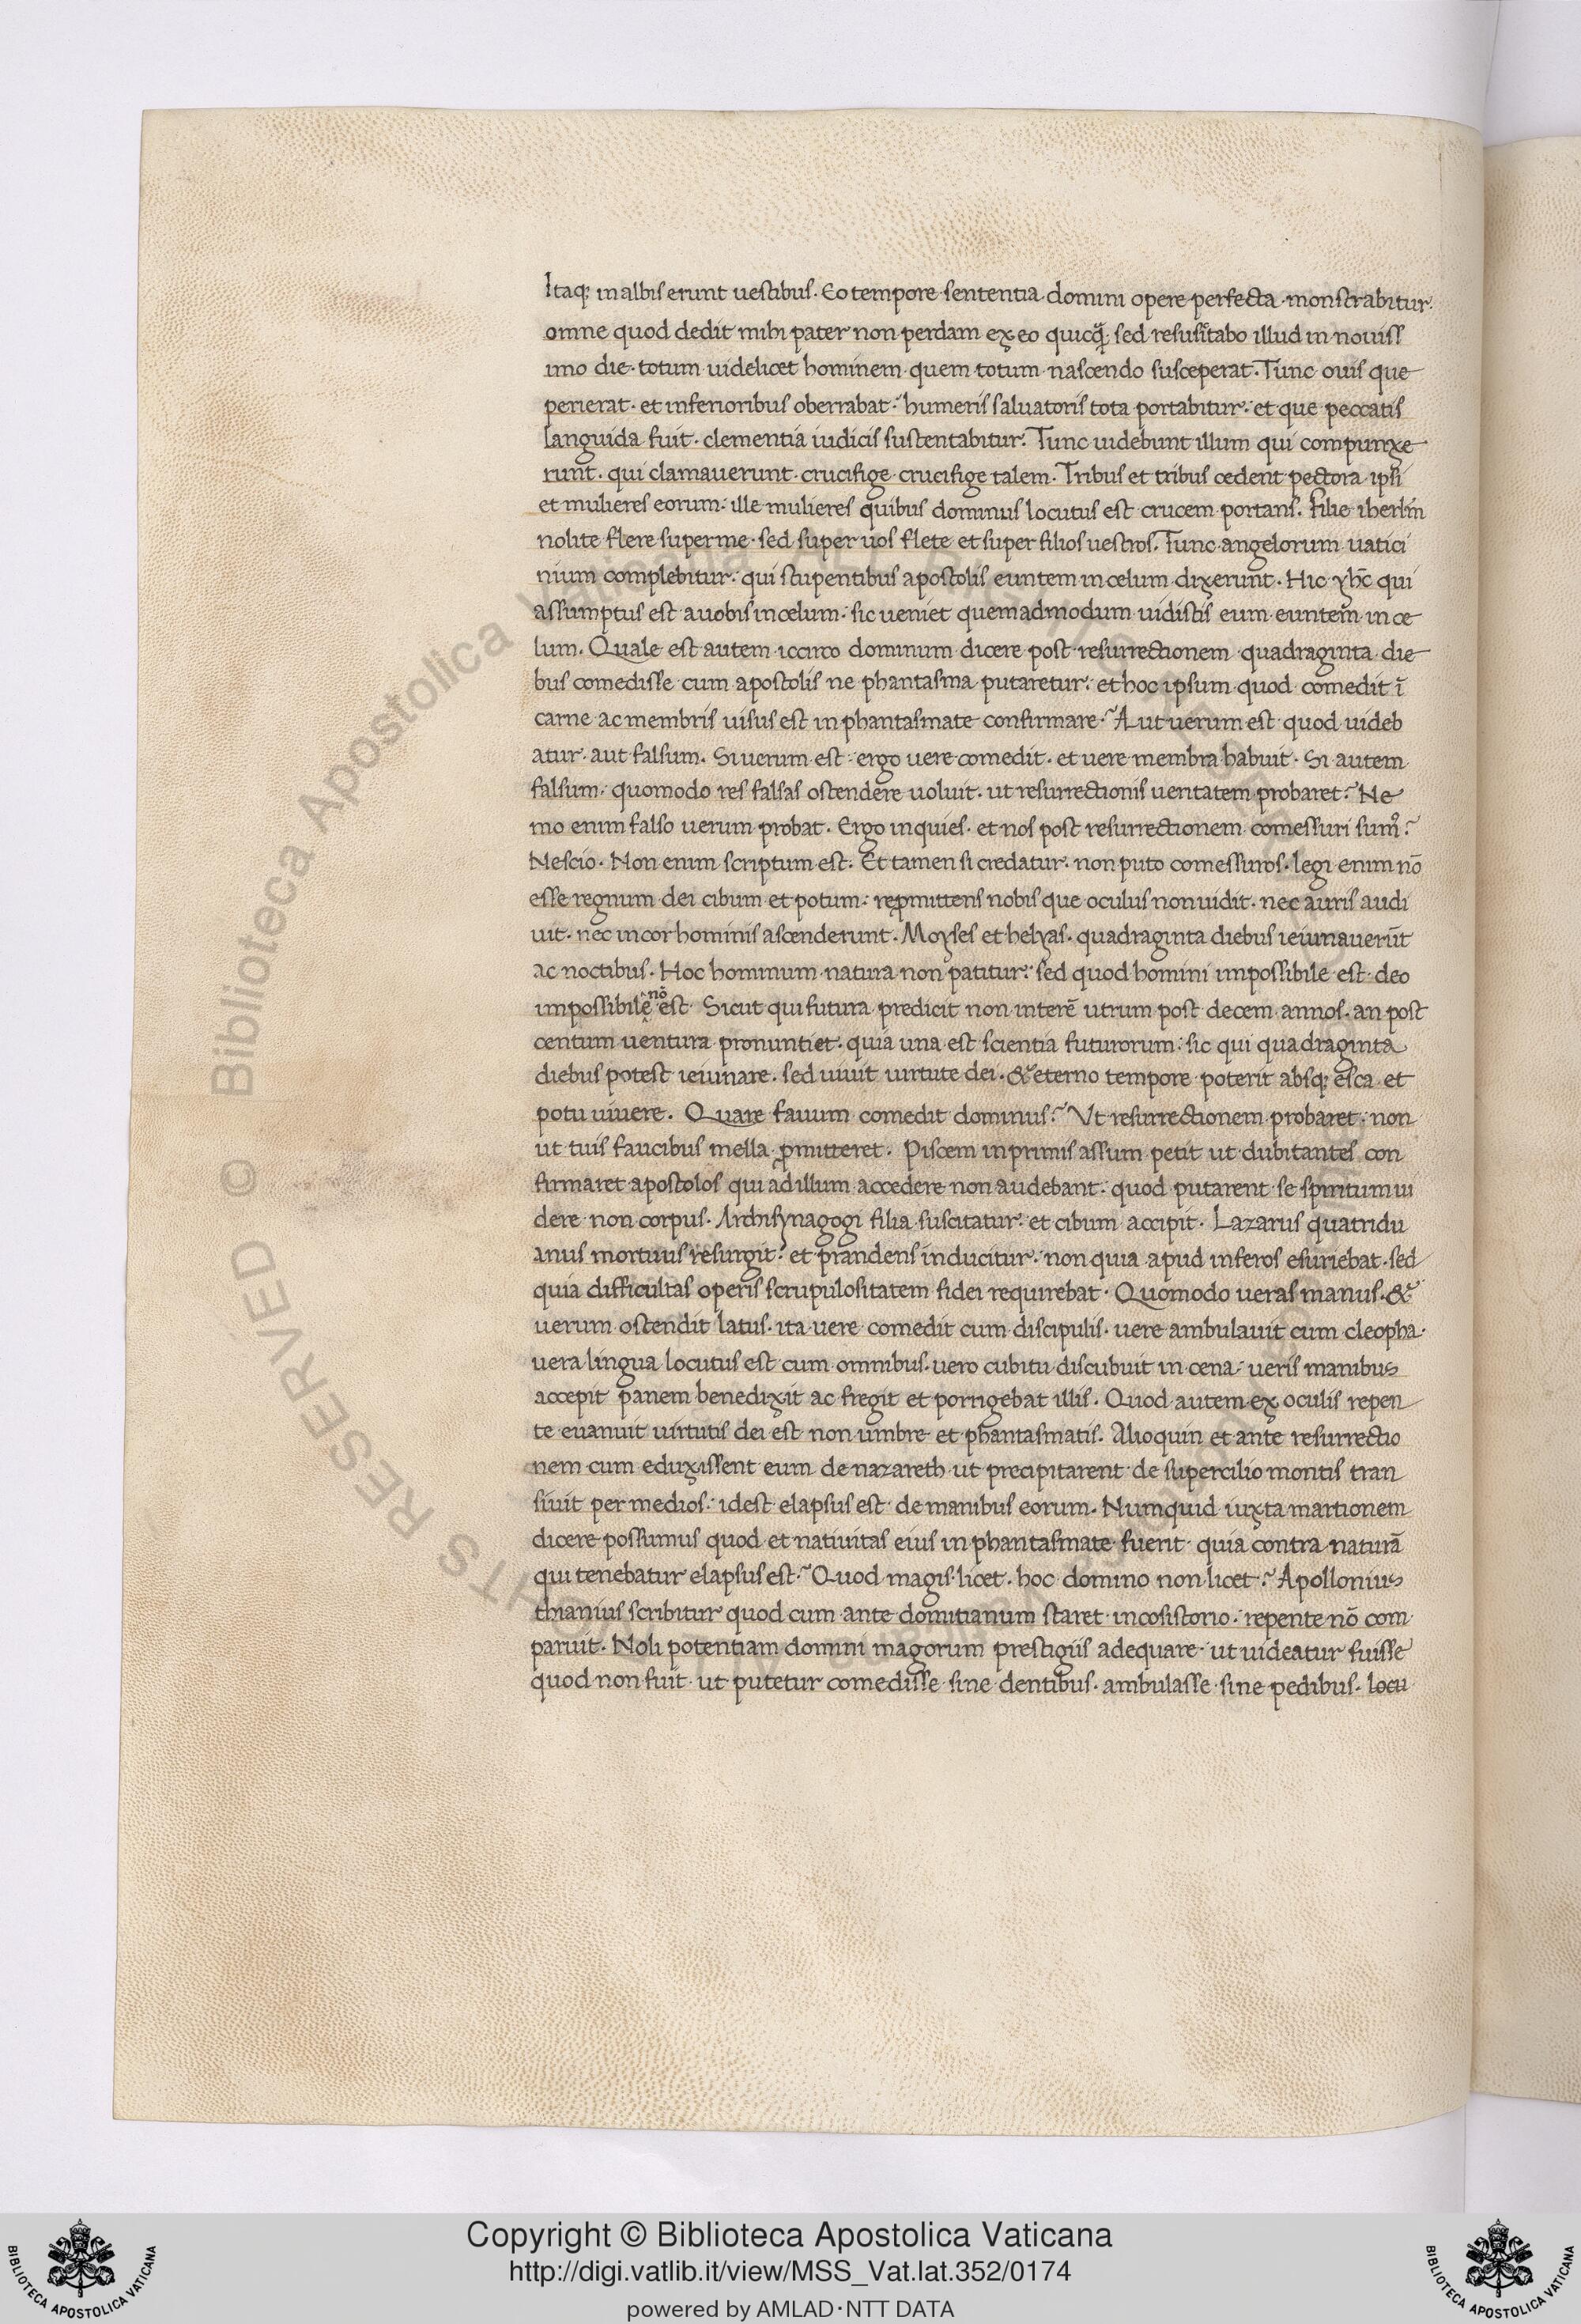 Itaq; in albis erunt uestibus. Eo tempore sententia domini opere perfecta monstrabitur.
omne quod dedit mihi pater non perdam ex eo quicq̃; sed resuscitabo illud in nouiss
imo die. totum uidelicet hominem quem totum nascendo susceperat. Tunc ouis que
perierat. et inferioribus oberrabat: humeris saluatoris tota portabitur: et que peccatis
languida fuit. clementia iudicis sustentabitur. Tunc uidebunt illum qui compunxe
runt. qui clamauerunt. crucifige crucifige talem. Tribus et tribus cedent pectora ipsi
et mulieres eorum: ille mulieres quibus dominus locutus est crucem portans. Filie iherl̃m
nolite flere super me. sed super uos flete et super filios uestros. Tunc angelorum uatici
nium complebitur: qui stupentibus apostolis euntem in celum dixerunt. Hic yhc̃ qui
assumptus est a uobis in celum: sic ueniet quemadmodum uidistis eum euntem in ce
lum. Quale est autem iccirco dominum dicere post resurrectionem quadraginta die
bus comedisse cum apostolis ne phantasma putaretur: et hoc ipsum quod comedit ĩ
carne ac membris uisus est in phantasmate confirmare? Aut uerum est quod uideb
atur. aut falsum. Si uerum est: ergo uere comedit. et uere membra habuit. Si autem
falsum: quomodo res falsas ostendere uoluit. ut resurrectionis ueritatem probaret? Ne
mo enim falso uerum probat. Ergo inquies. et nos post resurrectionem comessuri sum⁹?
Nescio. Non enim scriptum est. Et tamen si credatur. non puto comessuros. legi enim nõ
esse regnum dei cibum et potum: repmittens nobis que oculus non uidit. nec auris audi
uit. nec in cor hominis ascenderunt. Moyses et helyas. quadraginta diebus ieiunauerũt
ac noctibus. Hoc hominum natura non patitur: sed quod homini impossibile est. deo
impossibile nõ est. Sicut qui futura predicit non interẽ utrum post decem annos. an post
centum uentura pronuntiet. quia una est scientia futurorum: sic qui quadraginta
diebus potest ieiunare. sed uiuit uirtute dei. & eterno tempore poterit absq; esca et
potu uiuere. Quare fauum comedit dominus? Vt resurrectionem probaret: non
ut tuis faucibus mella pmitteret. Piscem in primis assum petit ut dubitantes con
firmaret apostolos qui ad illum accedere non audebant: quod putarent se spiritum ui
dere non corpus. Archisynagogi filia suscitatur: et cibum accipit. Lazarus quatridu
anus mortuus resurgit: et prandens inducitur: non quia apud inferos esuriebat. sed
quia difficultas operis scrupulositatem fidei requirebat. Quomodo ueras manus. &
uerum ostendit latus. ita uere comedit cum discipulis. uere ambulauit cum cleopha.
uera lingua locutus est cum omnibus. uero cubitu discubuit in cena: ueris manibus
accepit panem benedixit ac fregit et porrigebat illis. Quod autem ex oculis repen
te euanuit uirtutis dei est non umbre et phantasmatis. Alioquin et ante resurrectio
nem cum eduxissent eum de nazareth ut precipitarent de supercilio montis tran
siuit per medios: id est elapsus est de manibus eorum. Numquid iuxta martionem
dicere possumus quod et natiuitas eius in phantasmate fuerit quia contra naturã
qui tenebatur elapsus est? Quod magis licet. hoc domino non licet? Apollonius
thianius scribitur quod cum ante domitianum staret in cõsistorio: repente nõ com
paruit. Noli potentiam domini magorum prestigiis adequare. ut uideatur fuisse
quod non fuit. ut putetur comedisse sine dentibus. ambulasse sine pedibus. locu
Copyright © Biblioteca Apostolica Vaticana
http://digi.vatlib.it/view/MSS_Vat.lat.352/0174
powered by AMLAD·NTT DATA
BIBLIOTECA APOSTOLICA VATICANA
BIBLIOTECA APOSTOLICA VATICANA